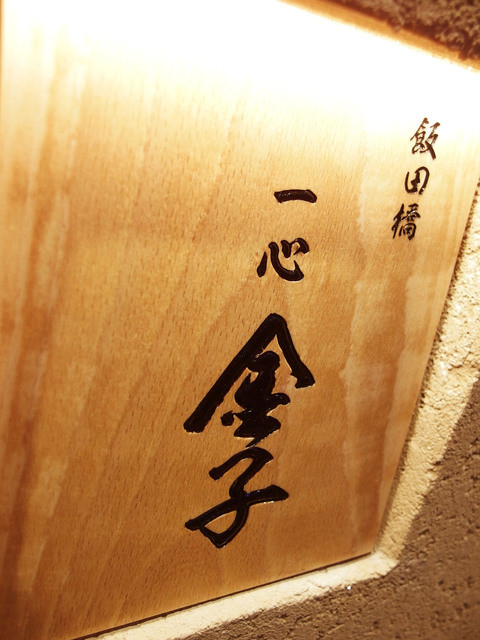 飯田橋
一心
金子